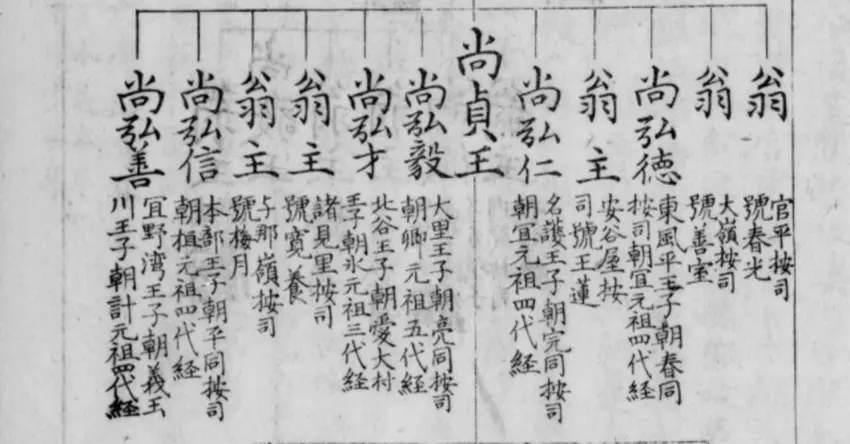 翁
官平按司
號春光
翁
大嶺按司
號善室
尚弘德
東風平王子朝春同
按司朝宜元祖四代経
翁主
安谷屋按
司號王蓮
尚弘仁
名護王子朝完同按司
朝宜元祖四代経
尚貞王
尚弘毅
大里王子朝亮同按司
朝卿元祖五代経
尚弘才
北谷王子朝愛大村
王子朝氷元祖三代経
翁主
諸見里按司
號寛養
翁主
与那嶺按司
號梅月
尚弘信
本部王子朝平同按司
朝植元祖四代経
尚弘善
宜野湾王子朝義玉
川王子朝計元祖四代経